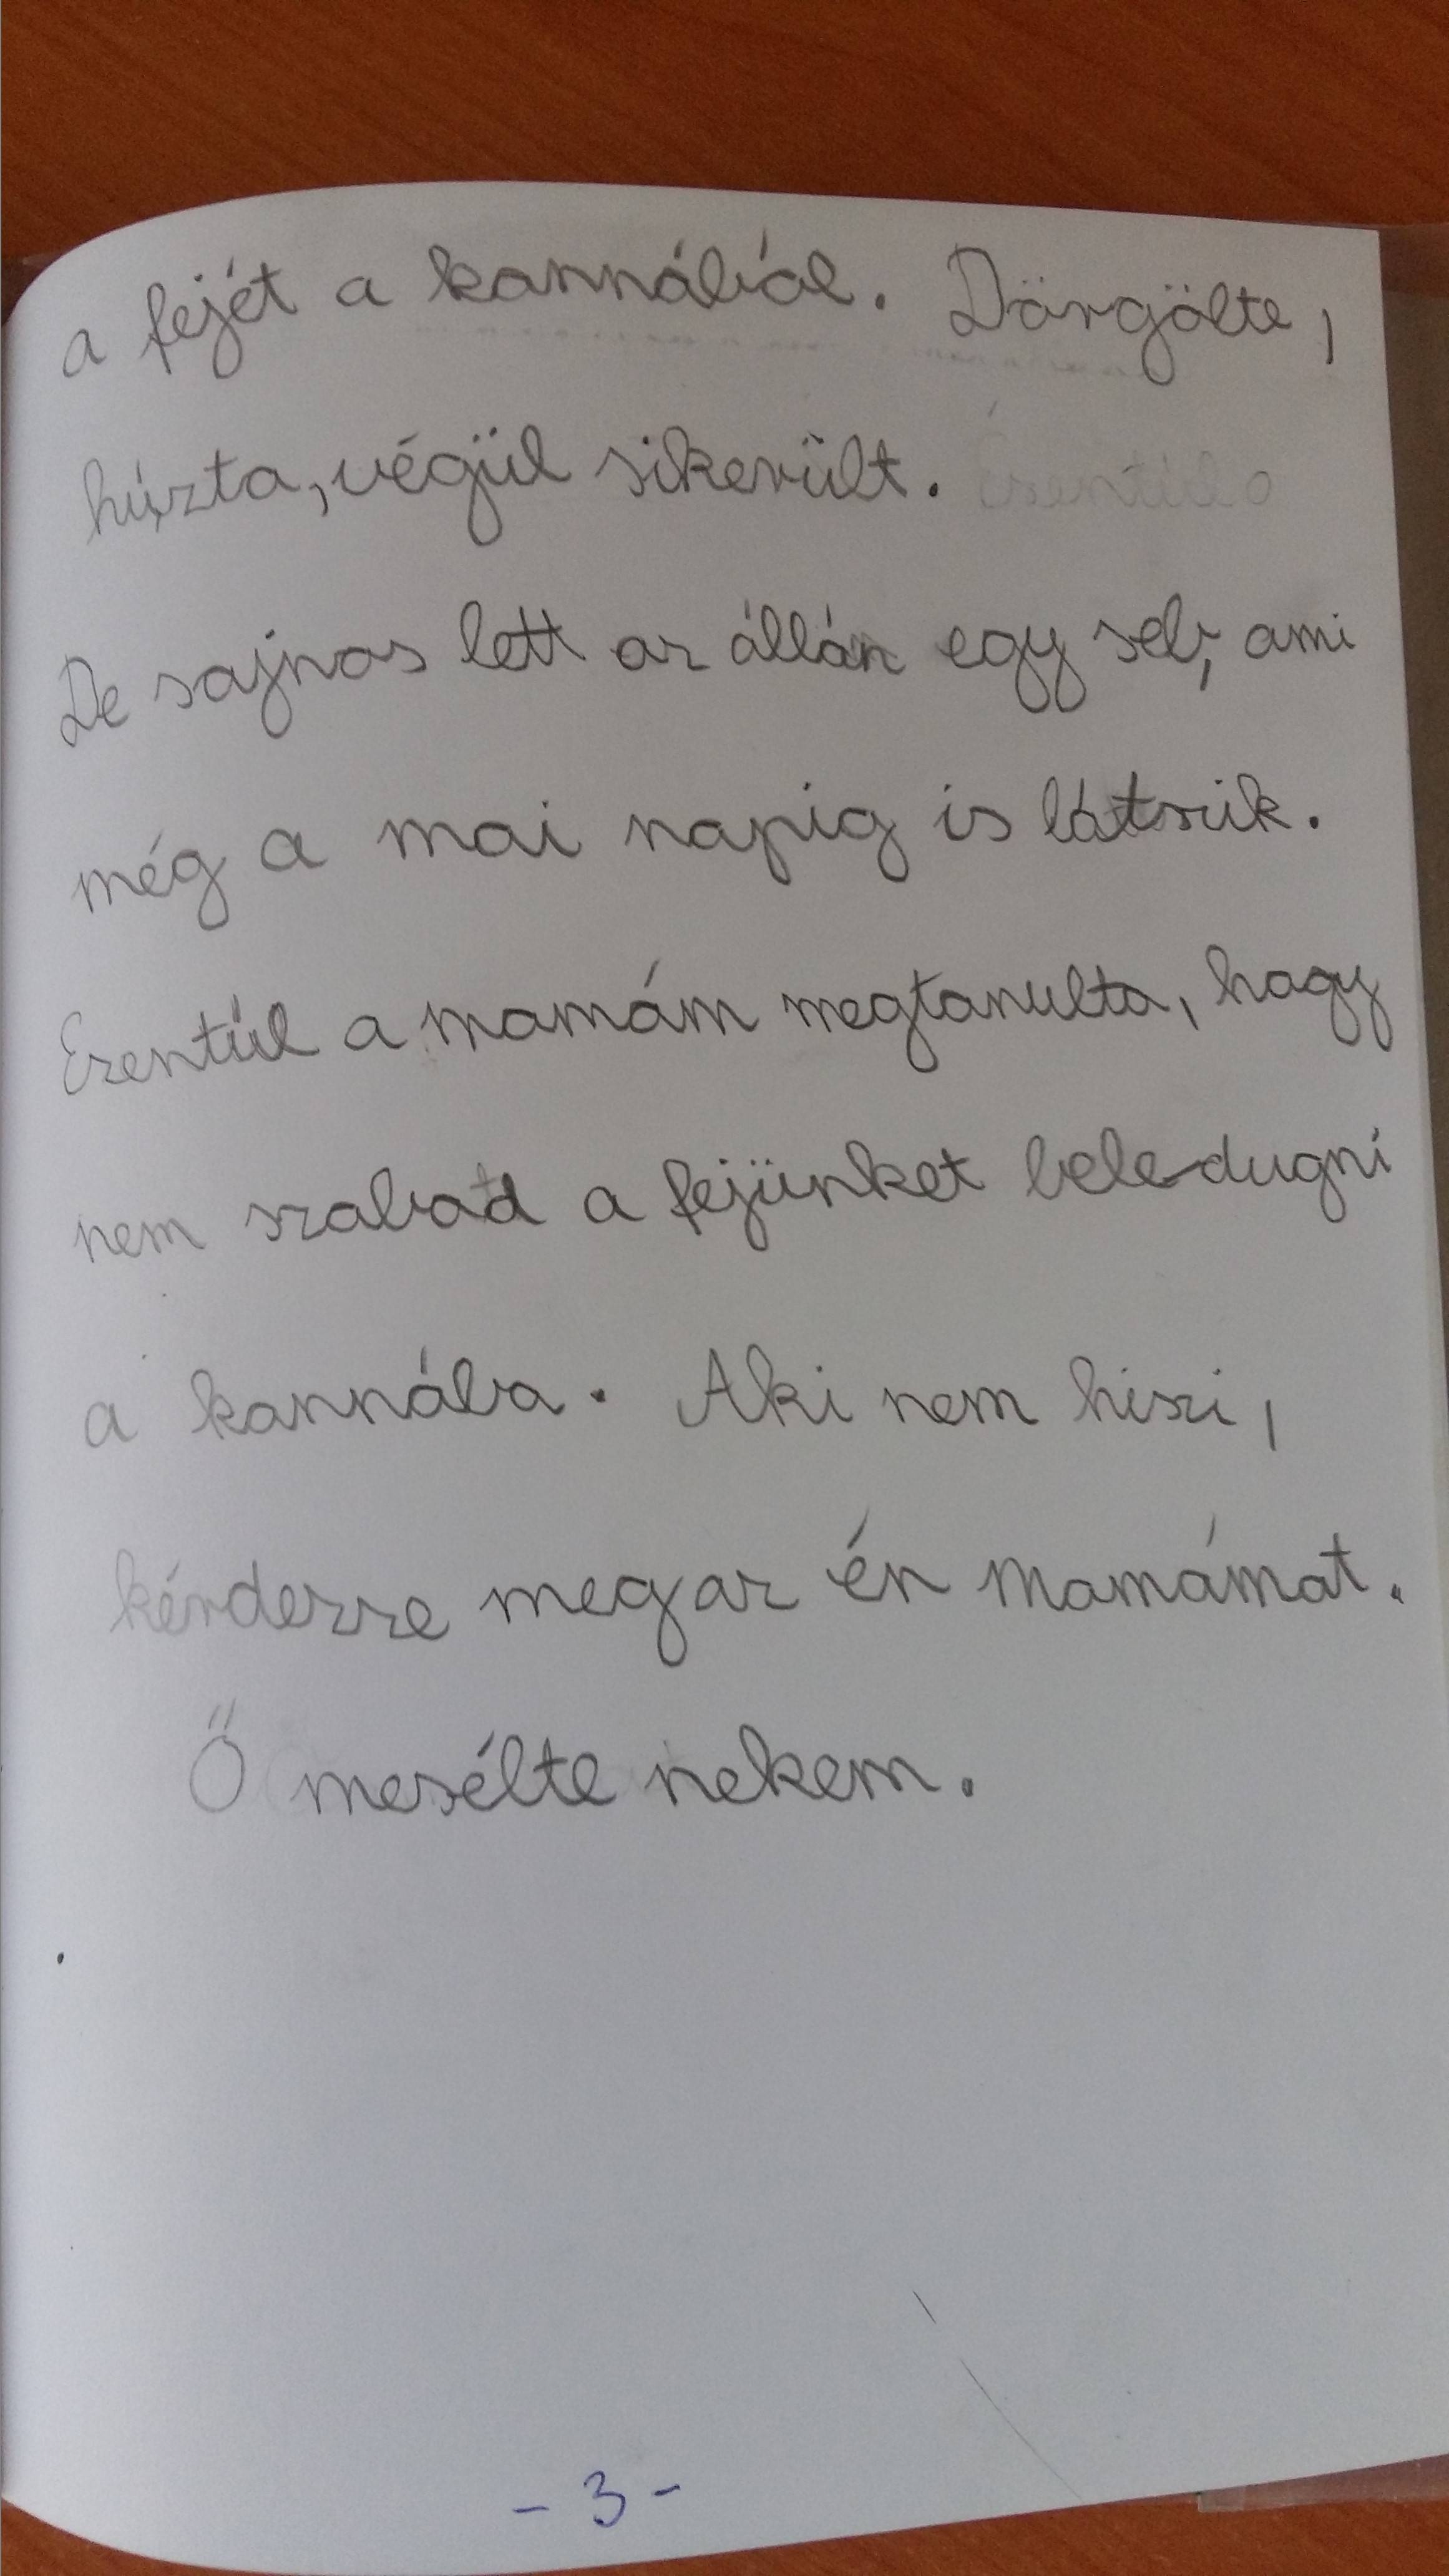 a fejét a kannából. Dörgölte,
húzta, végül sikerült.
De sajnos lett az állán egy seb, ami
még a mai napig is látszik.
Ezentúl a mamám megtanulta, hogy
nem szabad a fejünket bele-dugni
a kannába. Aki nem hiszi,
kérdezze meg az én Mamámat.
Ő mesélte nekem.
- 3 -